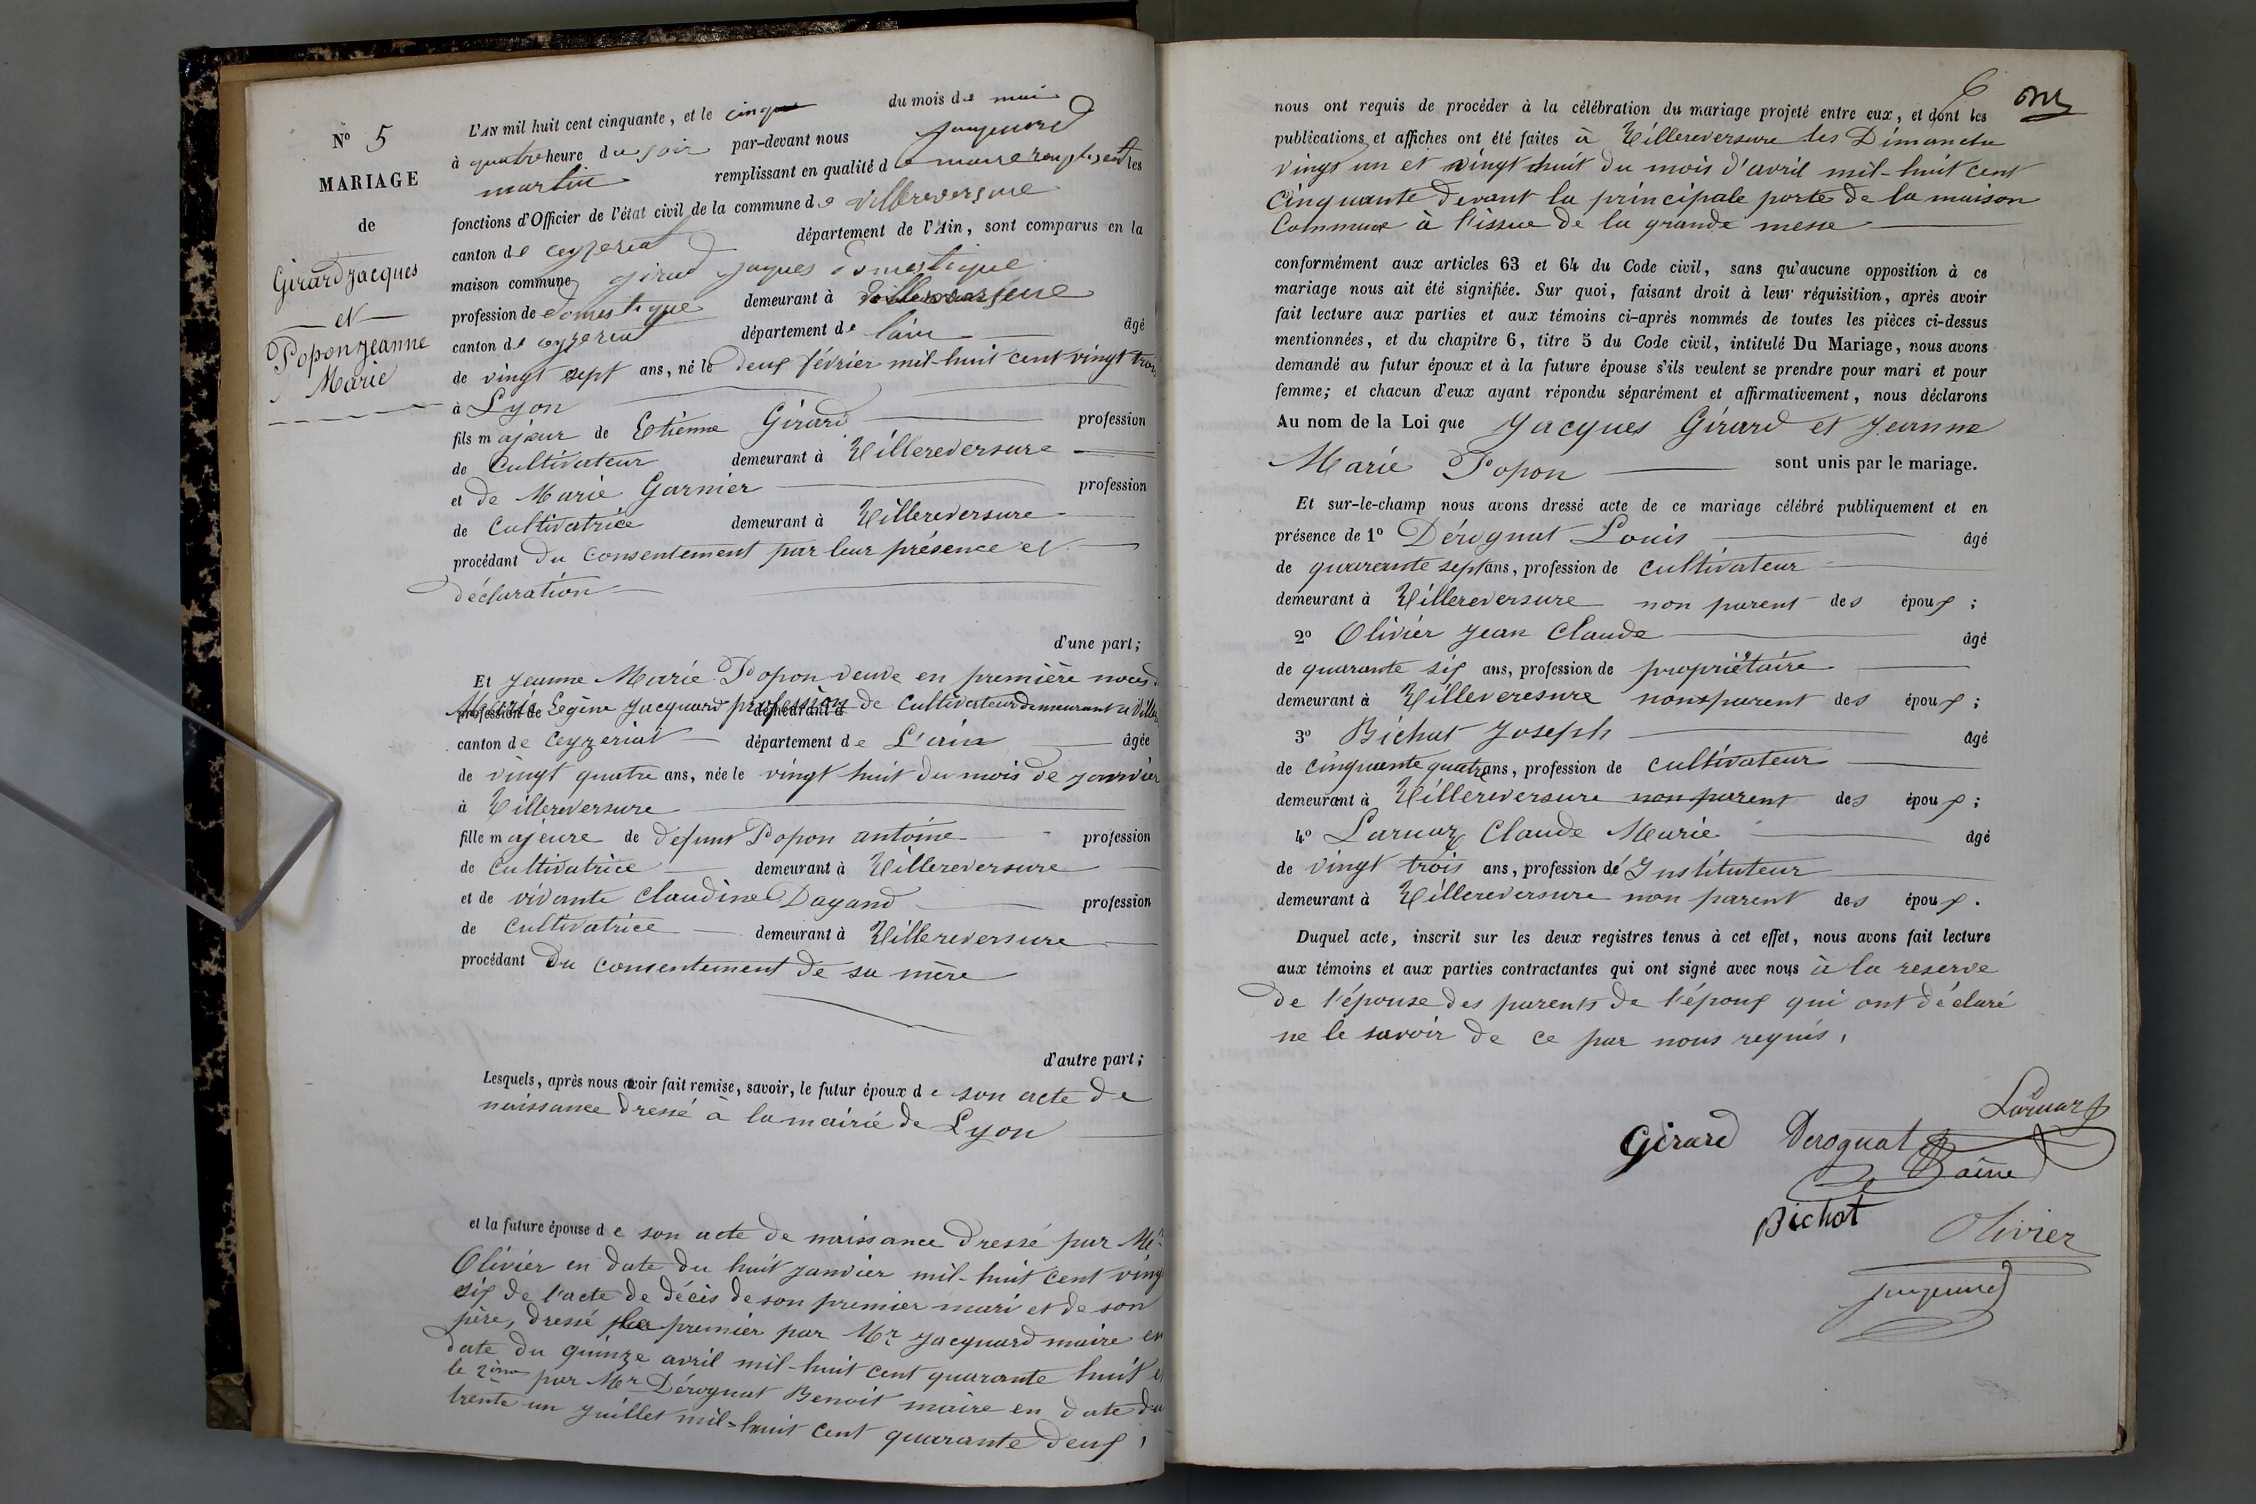 N° 5
MARIAGE
de
Girard Jacques
et
Popon Jeanne
Marie
L'AN mil huit cent cinquante, et le cinq du mois de mai
à quatre heure du soir par-devant nous
martin remplissant en qualité de maire remplissant les
fonctions d'Officier de l'état civil de la commune de Villereversure
canton de ceyzeriat département de l'Ain, sont comparus en la
maison commune girard jaques domestique
profession de domestique demeurant à Villereversure
canton de ceyzeriat département de l'ain âgé
de vingt sept ans, né le deux février mil-huit cent vingt trois
à Lyon
fils majeur de Etienne Girard profession
de Cultivateur demeurant à Villereversure
et de Marie Garnier profession
de Cultivatrice demeurant à Villereversure
procédant du consentement par leur présence et
déclaration
d'une part;
Et Jeanne Marie Popon veuve en première noces
profession de Legène Jacquard profession de cultivateur demeurant à Ville
canton de Ceyzeriat département de L'ain âgée
de vingt quatre ans, née le vingt huit du mois de janvier
à Villereversure
fille majeure de defunt Popon antoine profession
de cultivatrice demeurant à Villereversure
et de vivante Claudine Dagand profession
de Cultivatrice demeurant à Villereversure
procédant du consentement de sa mère
d'autre part;
Lesquels, après nous avoir fait remise, savoir, le futur époux de son acte de
naissance dressé à la mairie de Lyon
et la future épouse de son acte de naissance dressé par Mr
Olivier en date du huit janvier mil-huit cent vingt
six de l'acte de décès de son premier mari et de son
père, dressé le premier par Mr Jacquard maire en
date du quinze avril mil-huit cent quarante huit et
le 2ème par Mr Dérognat Benoit maire en date du
trente un juillet mil-huit cent quarante deux,
nous ont requis de procéder à la célébration du mariage projeté entre eux, et dont les
publications et affiches ont été faites à Villereversure les Dimanche
vingt un et vingt huit du mois d'avril mil-huit cent
cinquante devant la principale porte de la maison
Commune à l'issue de la grande messe
conformément aux articles 63 et 64 du Code civil, sans qu'aucune opposition à ce
mariage nous ait été signifiée. Sur quoi, faisant droit à leur réquisition, après avoir
fait lecture aux parties et aux témoins ci-après nommés de toutes les pièces ci-dessus
mentionnées, et du chapitre 6, titre 5 du Code civil, intitulé Du Mariage, nous avons
demandé au futur époux et à la future épouse s'ils veulent se prendre pour mari et pour
femme; et chacun d'eux ayant répondu séparément et affirmativement, nous déclarons
Au nom de la Loi que Jacques Girard et Jeanne
Marie Popon sont unis par le mariage.
Et sur-le-champ nous avons dressé acte de ce mariage célébré publiquement et en
présence de 1° Dérognat Louis âgé
de quarante sept ans, profession de cultivateur
demeurant à Villereversure non parent des époux;
2° Olivier Jean Claude âgé
de quarante six ans, profession de propriétaire
demeurant à Villeveresure non parent des époux;
3° Bichat Joseph âgé
de cinquante quatre ans, profession de cultivateur
demeurant à Villereversure non parent des époux;
4° Laruaz Claude Marie âgé
de vingt trois ans, profession de Instituteur
demeurant à Villereversure non parent des époux.
Duquel acte, inscrit sur les deux registres tenus à cet effet, nous avons fait lecture
aux témoins et aux parties contractantes qui ont signé avec nous à la reserve
de l'épouse des parents de l'époux qui ont déclaré
ne le savoir de ce par nous requis,
Laruaz
Girard Derognat
Bichat
Olivier